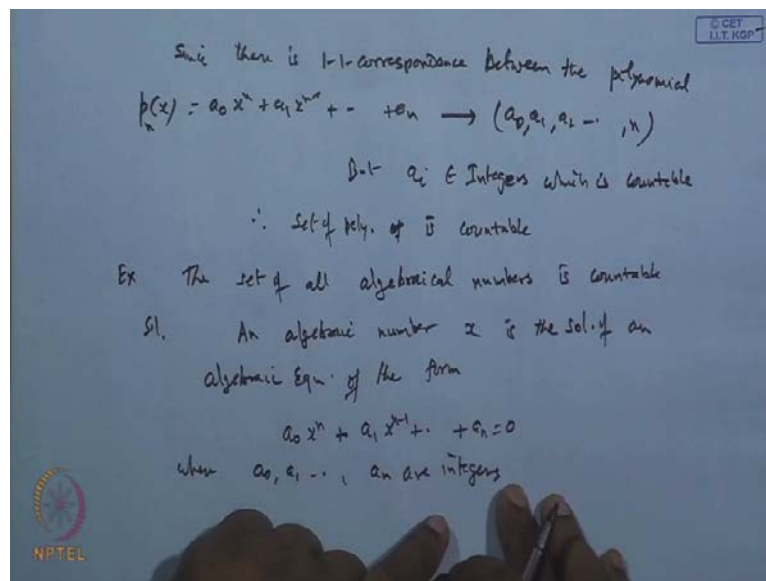 © CET
I.I.T. KGP
Since there is 1-1-correspondence between the polynomial
pₙ(x) = a₀ xⁿ + a₁ xⁿ⁻¹ + - +aₙ → (a₀, a₁, a₂ -- , n)
But aᵢ ∈ Integers which is countable
∴ Set of poly. is countable
Ex The set of all algebraical numbers is countable
Sl. An algebraic number x is the sol. of an
algebraic Equn. of the form
a₀ xⁿ + a₁ xⁿ⁻¹ + · + aₙ = 0
when a₀, a₁ -- , aₙ are integers
NPTEL